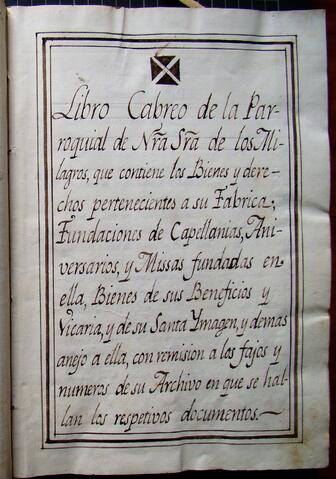 Libro Cabreo de la Par-
roquial de Nr̃a Sr̃a de los Mi-
lagros, que contiene los Bienes y dere-
chos pertenecientes a su Fabrica;
Fundaciones de Capellanias, Ani-
versarios, y Missas fundadas en
ella, Bienes de sus Beneficios y
Vicaria, y de su Santa Ymagen, y demas
anejo a ella, con remision a los fajos y
numeros de su Archivo en que se hal-
lan los respetivos documentos.~